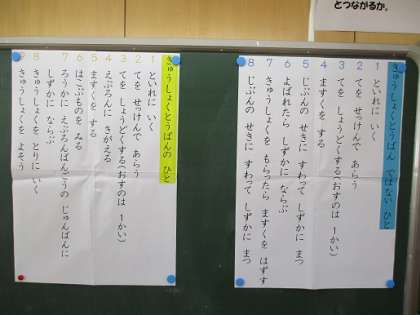 とつながるか。
きゅうしょくとうばん ではない ひと
1 といれに いく
2 てを せっけんで あらう
3 てを しょうどくする(おすのは 1かい)
4 ますくを する
5 じぶんの せきに すわって しずかに まつ
6 よばれたら しずかに ならぶ
7 きゅうしょくを もらったら ますくを はずす
8 じぶんの せきに すわって しずかに まつ
きゅうしょくとうばんの ひと
1 といれに いく
2 てを せっけんで あらう
3 てを しょうどくする(おすのは 1かい)
4 えぷろんに きがえる
5 ますくを する
6 はこぶものを みる
7 ろうかに えぷろんばんごうの じゅんばんに
しずかに ならぶ
8 きゅうしょくを とりに いく
9 きゅうしょくを よそう